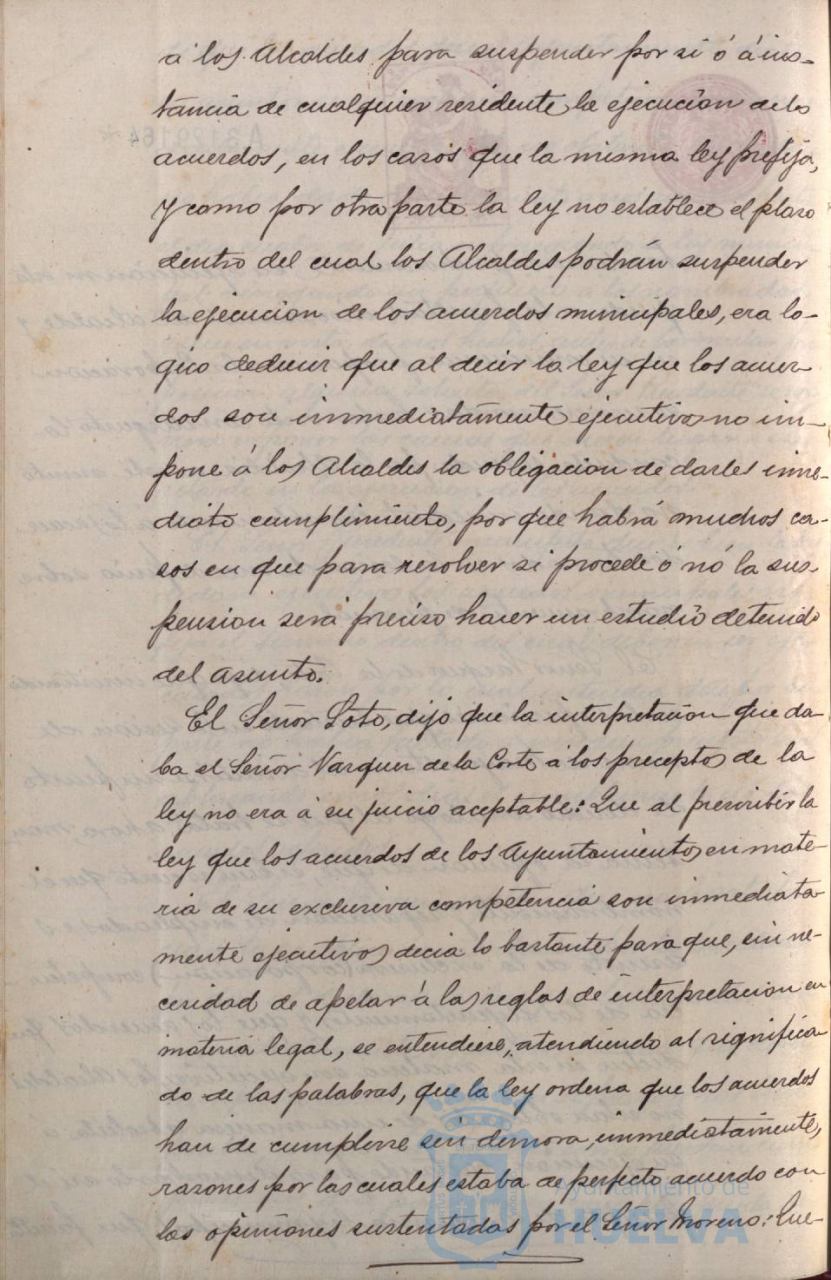 á los Alcaldes para suspender por sí ó á ins-
tancia de cualquier residente la ejecución de los
acuerdos, en los casos que la misma ley prefija,
y como por otra parte la ley no establece el plaso
dentro del cual los Alcaldes podrán suspender
la ejecucion de los acuerdos municipales, era lo-
gico deducir que al decir la ley que los acuer-
dos son inmediatamente ejecutivos no im-
pone á los Alcaldes la obligacion de darles inme-
diato cumplimiento, por que habrá muchos ca-
sos en que para resolver si procede ó nó la sus-
pension será preciso hacer un estudio detenido
del asunto.
El Señor Soto, dijo que la interpretacion que da-
ba el Señor Vazquez de la Corte á los preceptos de la
ley no era á su juicio aceptable: Que al prescribir la
ley que los acuerdos de los Ayuntamientos en mate-
ria de su exclusiva competencia son inmediata-
mente ejecutivos decia lo bastante para que, sin ne-
cesidad de apelar á las reglas de interpretacion en
materia legal, se entendiese, atendiendo al significa-
do de las palabras, que la ley ordena que los acuerdos
han de cumplirse sin demora, inmediatamente,
razones por las cuales estaba de perfecto acuerdo con
las opiniones sustentadas por el Señor Moreno: Que-
Ayuntamiento de
HUELVA